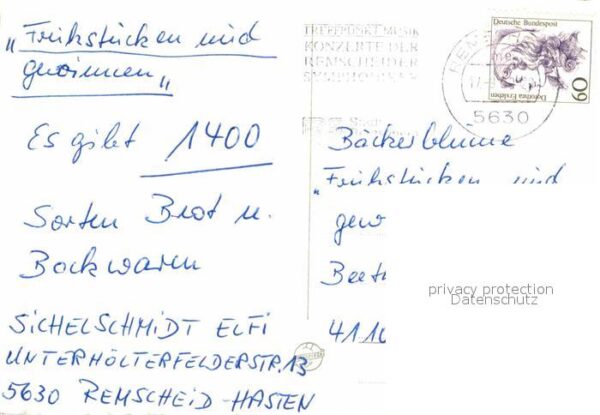 „Frühstücken und
gewinnen"
Es gibt 1400
Sorten Brot u.
Backwaren
SICHELSCHMIDT ELFI
UNTERHÖLTERFELDERSTR. 13
5630 REMSCHEID-HASTEN
TREFFPUNKT MUSIK
KONZERTE DER
REMSCHEIDER
SYMPHONIKER
5630
Deutsche Bundespost
Dorothea Erxleben
60
Bäckerblume
„Frühstücken und
gew
Beet
privacy protection
Datenschutz